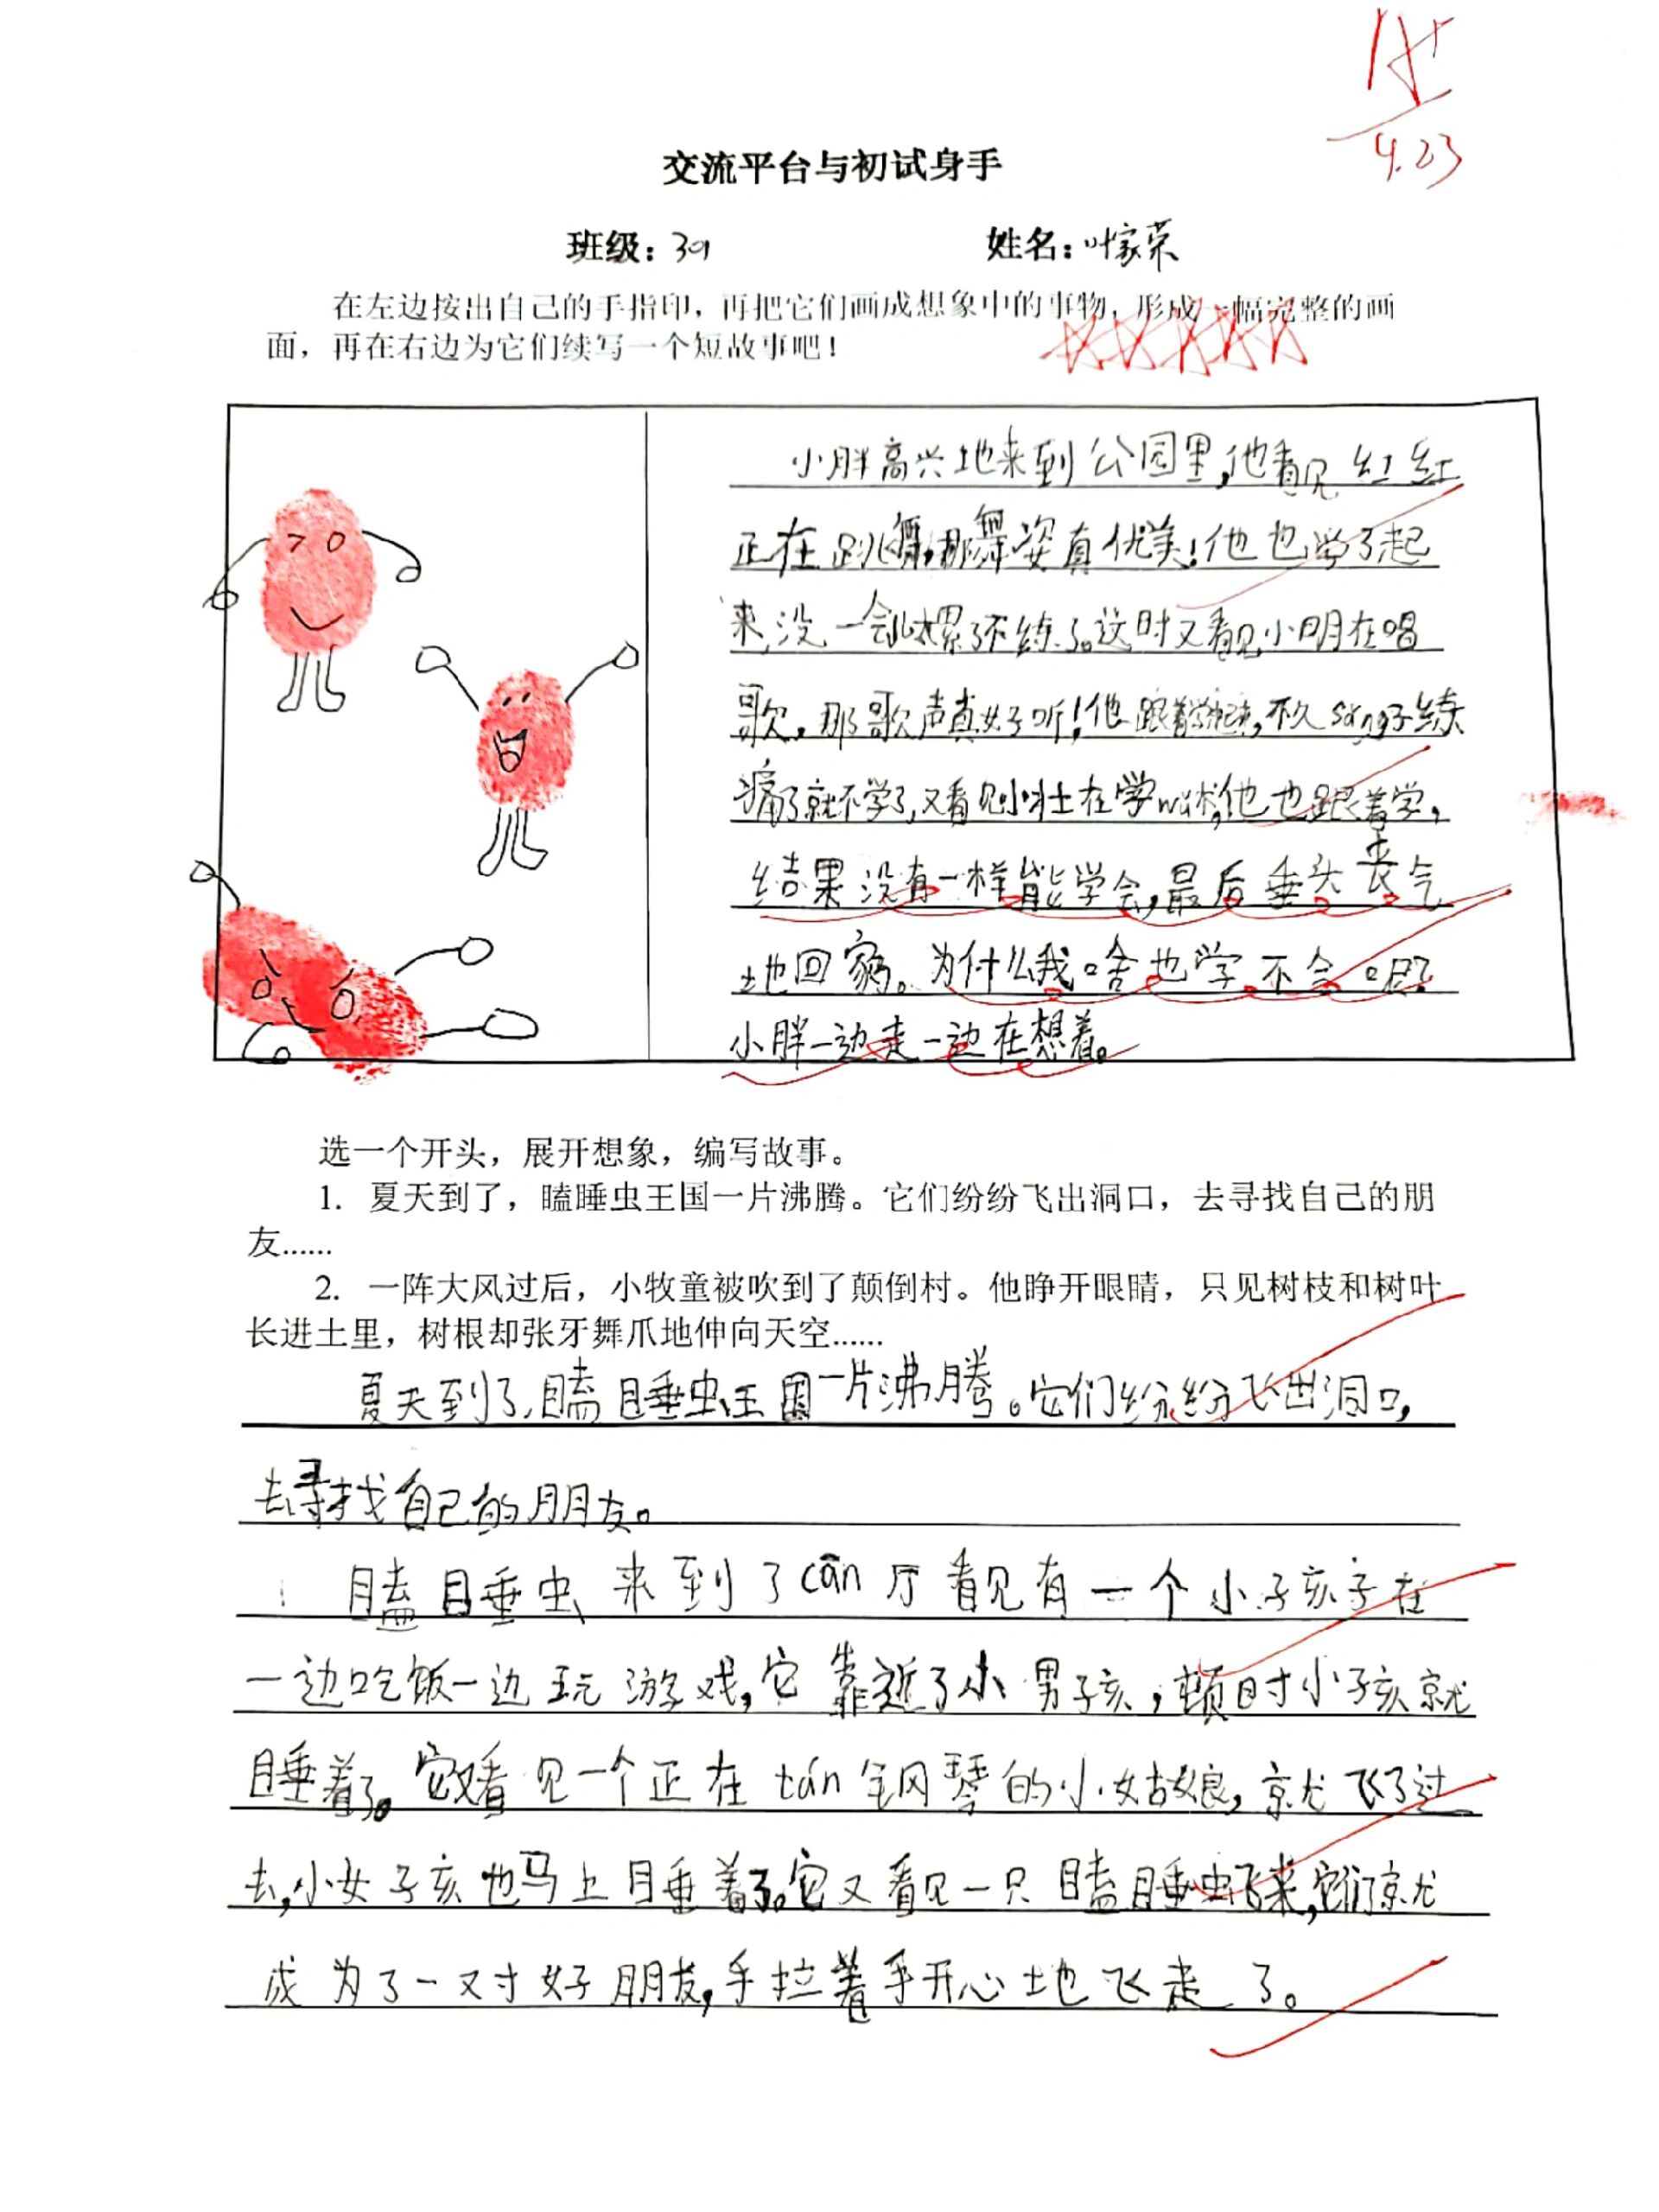 A+
4.23
交流平台与初试身手
班级：39 姓名：叶家荣
在左边按出自己的手指印，再把它们画成想象中的事物，形成一幅完整的画
面，再在右边为它们续写一个短故事吧！
小胖高兴地来到公园里，他看见红红
正在跳舞，那舞姿真优美！他也学了起
来，没一会儿太累了不练了。这时又看见小明在唱
歌，那歌声真好听！他跟着学起来，不久sǎng子练
痛了就不学了，又看见小壮在学wǔ术，他也跟着学，
结果没有一样能学会，最后垂头丧气
地回家。为什么我啥也学不会呢？
小胖一边走一边在想着。
选一个开头，展开想象，编写故事。
1. 夏天到了，瞌睡虫王国一片沸腾。它们纷纷飞出洞口，去寻找自己的朋
友......
2. 一阵大风过后，小牧童被吹到了颠倒村。他睁开眼睛，只见树枝和树叶
长进土里，树根却张牙舞爪地伸向天空......
夏天到了，瞌睡虫王国一片沸腾。它们纷纷飞出洞口，
去寻找自己的朋友。
瞌睡虫来到了cān厅看见有一个小孩子在
一边吃饭一边玩游戏，它靠近了小男孩，顿时小孩就
睡着了。它又看见一个正在tán钢琴的小姑娘，就飞了过
去，小女孩也马上睡着了。它又看见一只瞌睡虫飞来，它们就
成为了一对好朋友，手拉着手开心地飞走了。